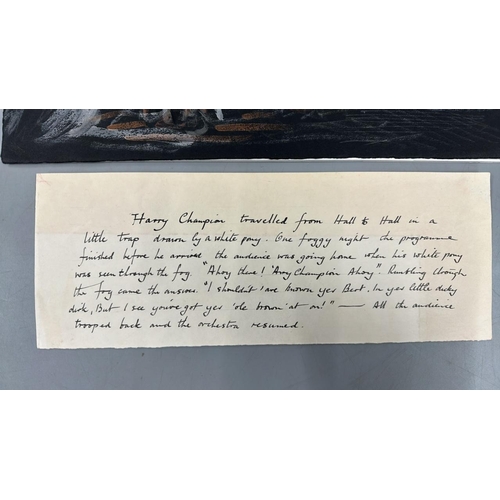 Harry Champion travelled from Hall to Hall in a
little trap drawn by a white pony. One foggy night the programme
finished before he arrived the audience was going home when his white pony
was seen through the fog. "Ahoy there! 'Arry Champion Ahoy". Rumbling through
the fog came the answer. "I shouldn't 'ave known yer Bert, in yer little dicky
dirk, But I see you've got yer 'ole brown 'at on!" — All the audience
trooped back and the orchestra resumed.